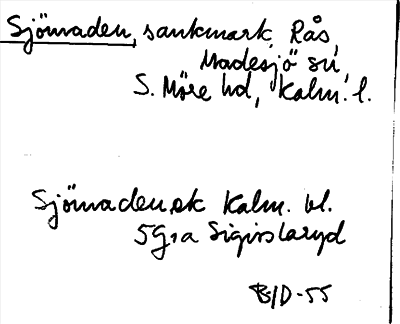 Sjömaden, sankmark, Rås,
Madesjö sn,
S. Möre hd, Kalm. l.
Sjömaden, ek Kalm. bl.
5G,a Sigislaryd
B/D-55